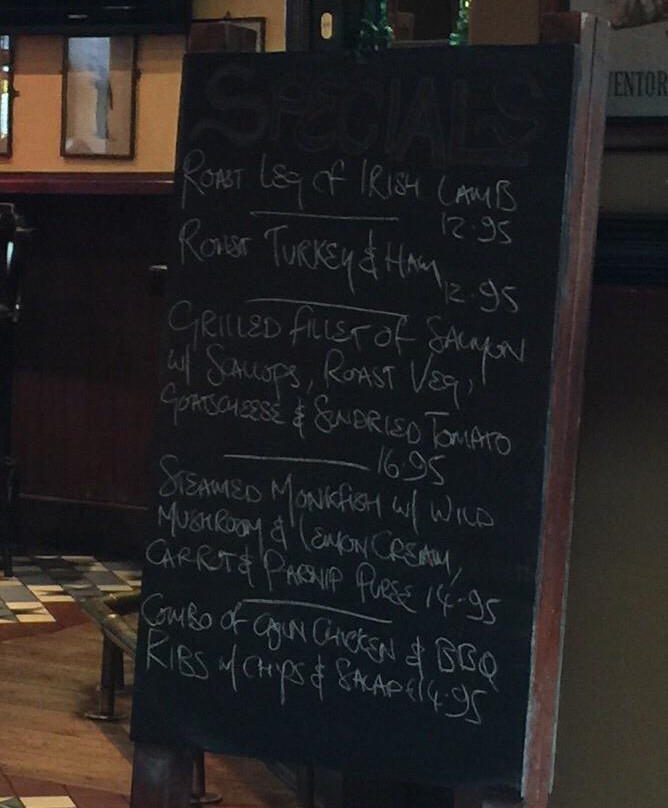 SPECIALS
ROAST LEG OF IRISH LAMB
12.95
ROAST TURKEY & HAM
12.95
GRILLED FILLET OF SALMON
w/ SCALLOPS, ROAST VEG,
GOATSCHEESE & SUNDRIED TOMATO
16.95
STEAMED MONKFISH w/ WILD
MUSHROOM & LEMON CREAM,
CARROT & PARSNIP PUREE 14.95
COMBO OF CAJUN CHICKEN & BBQ
RIBS w/ CHIPS & SALAD €14.95
VENTOR